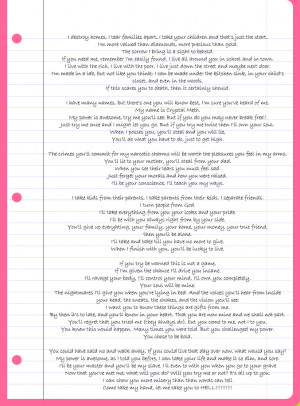 I destroy homes, I tear families apart, I take your children and that's just the start.
I'm more valued than diamonds, more precious than gold.
The sorrow I bring is a sight to behold.
If you need me, remember I'm easily found, I live all around you in school and in town.
I live with the rich, I live with the poor, I live just down the street and maybe next door.
I'm made in a lab, but not like you think; I can be made under the kitchen sink, in your child's
closet, and even in the woods.
If this scares you to death, then it certainly should.
I have many names, but there's one you will know best, I'm sure you've heard of me.
My name is Crystal Meth.
My power is awesome, try me you'll see. But if you do you may never break free!
Just try me once and I might let you go. But if you try me twice then I'll own your soul.
When I posses you, you'll steal and you will lie.
You'll do what you have to do, just to get high.
The crimes you'll commit for my narcotic charms will be worth the pleasures you feel in my arms.
You'll lie to your mother, you'll steal from your dad.
When you see their tears you must feel sad.
Just forget your morals and how you were raised.
I'll be your conscience, I'll teach you my ways.
I take kids from their parents, I take parents from their kids, I separate friends.
I turn people from God.
I'll take everything from you your looks and your pride.
I'll be with you always right from by your side.
You'll give up everything, your family, your home, your money, your true friend,
then you'll be alone.
I'll take and take till you have no more to give.
When I finish with you, you'll be lucky to live.
If you try me warned this is not a game,
If I'm given the chance I'll drive you insane.
I'll ravage your body, I'll control your mind, I'll own, you completely.
Your soul will be mine.
The nightmares I'll give you when you're lying in bed. And the voices you'll hear from inside
your head, the sweats, the shakes, and the vision you'll see.
I want you to know these things are gifts from me.
By then it's to late, and you'll know in your heart. That you are now mine and we shall not part.
You'll regret that you tried me (they always do), but you come to me, not I to you.
You knew this would happen. Many times you were told. But you challenged my power.
You chose to be bold.
You could have said no and walk away. If you could live that day over now, what would you say?
My power is awesome, as I told you before, I can take your life and make it so dim, and sore.
I'll be your master and you'll be my slave. I'll even to with you when you go to your grave
Now that you've met me, what will you do? Will you try me or not? It's all up to you.
I can show you more misery than than words can tell
Come take my hand, let me take you to HELL!!!!!!!!